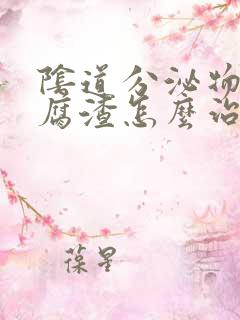 陰道分泌物
腐渣怎麼治
葆星